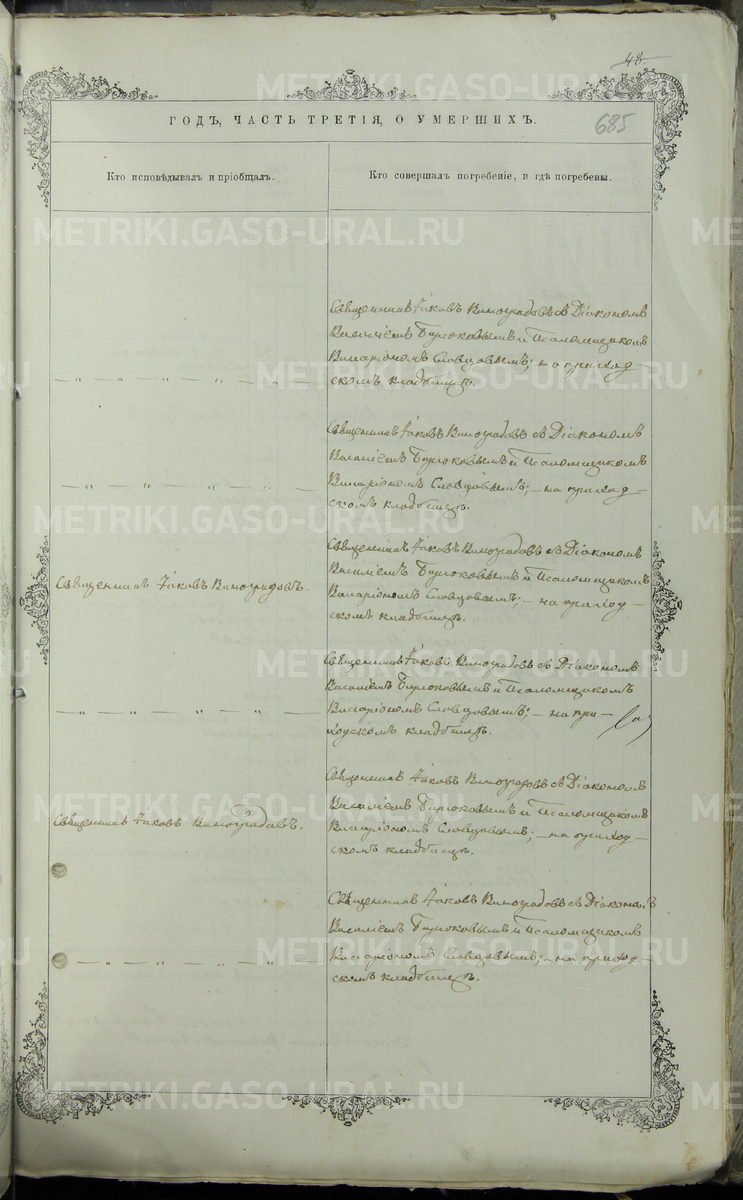 48.
ГОДЪ, ЧАСТЬ ТРЕТІЯ, О УМЕРШИХЪ.
685
Кто исповѣдывалъ и пріобщалъ.
Кто совершалъ погребеніе, и гдѣ погребены.
Священникъ Іаковъ Виноградовъ съ Діакономъ
Василіемъ и Псаломщикомъ
Виссаріономъ Словцовымъ; на приход-
скомъ кладбищѣ.
— „ — „ — „ — „ — „ —
Священникъ Іаковъ Виноградовъ съ Діакономъ
Василіемъ и Псаломщикомъ
Виссаріономъ Словцовымъ; — на приход-
скомъ кладбищѣ.
— „ — „ — „ — „ — „ —
Священникъ Іаковъ Виноградовъ.
Священникъ Іаковъ Виноградовъ съ Діакономъ
Василіемъ и Псаломщикомъ
Виссаріономъ Словцовымъ; — на приход-
скомъ кладбищѣ.
Священникъ Іаковъ Виноградовъ съ Діакономъ
Василіемъ и Псаломщикомъ
Виссаріономъ Словцовымъ; — на при-
ходскомъ кладбищѣ.
— „ — „ — „ — „ — „ —
Священникъ Іаковъ Виноградовъ.
Священникъ Іаковъ Виноградовъ съ Діакономъ
Василіемъ и Псаломщикомъ
Виссаріономъ Словцовымъ; — на приход-
скомъ кладбищѣ.
Священникъ Іаковъ Виноградовъ съ Діакономъ
Василіемъ и Псаломщикомъ
Виссаріономъ Словцовымъ; — на приход-
скомъ кладбищѣ.
— „ — „ — „ — „ — „ —
METRIKI.GASO-URAL.RU